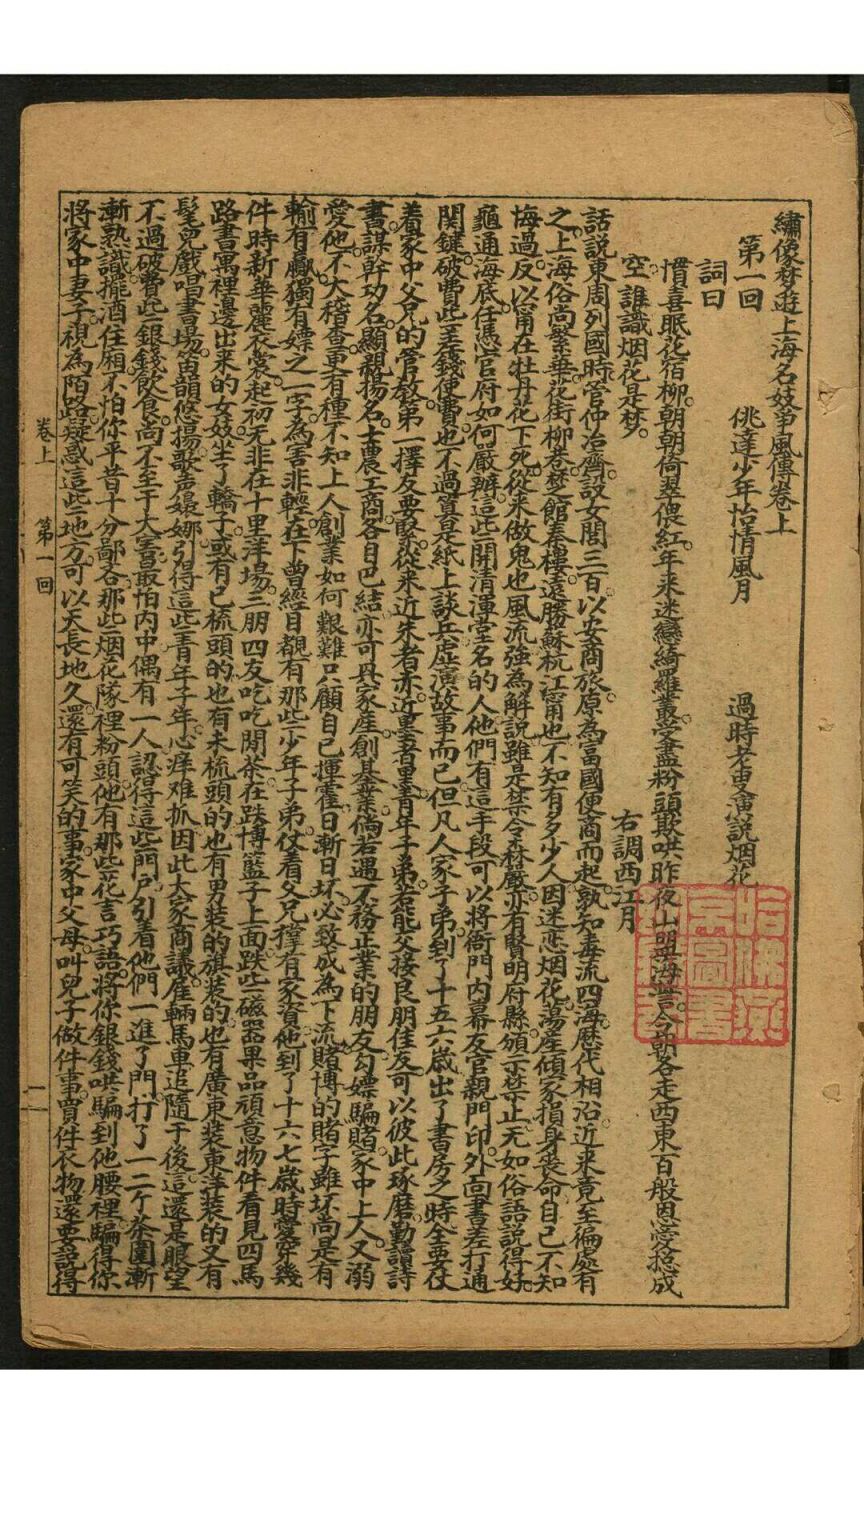 繡像梦遊上海名妓爭風傳卷上
第一回　佻達少年怡情風月　過時老叟演說烟花
詞曰
慣喜眠花宿柳。朝朝倚翠偎紅。年來迷戀綺羅叢。受盡粉頭欺哄。昨夜山盟海誓。今朝各走西東。百般恩愛總成
空。誰識烟花是梦。　右調西江月
話說東周列國時。管仲治齊。設女閭三百。以安商旅。原為富國便商而起。孰知毒流四海。歷代相沿。近来竟至徧處有
之。上海俗尚繁華。花街柳巷。楚館秦樓。遠勝蘇杭江甯也。不知有多少人。因迷恋烟花。蕩產傾家。損身喪命。自己不知
悔過。反以甯在牡丹花下死。從来做鬼也風流。強為解說。雖是禁令森嚴。亦有賢明府縣。頒示禁止。无如俗語說得好。
龜通海底。任憑官府如何嚴辦。這些開清渾堂名的人。他們有這手段。可以將衙門内幕友官親門印。外面書差打通
関鍵。破費些差錢使費。也不過算是紙上談兵。虛演故事而已。但凡人家子弟。到了十五六歲。出了書房之時。全要仗
着家中父兄的管教。第一擇友要緊。從来近朱者赤。近墨者黑。青年子弟。若能交接良朋佳友。可以彼此琢磨。勤讀詩
書。謀幹功名。顯親揚名。士農工商。各自巴結。亦可興家產。創基業。倘若遇不務正業的朋友。勾嫖騙賭。家中上人又溺
愛他。不大稽查。更有種不知上人創業如何艱難。只顧自己揮霍。日漸日坏。必致成為下流。賭博的賭字雖坏。尚是有
輸有贏。獨有嫖之一字。為害非輕。在下曾經目覩。有那些少年子弟。仗着父兄撑有家資。他到了十六七歲時。愛穿幾
件時新華麗衣裳。起初无非在十里洋場。三朋四友。吃吃閒茶。在跌博籃子上面。跌些磁器果品頑意物件。看見四馬
路書寓裡邊出来的女妓。坐了轎子。或有已梳頭的。也有未梳頭的。也有男装的。旗装的。也有廣東装東洋装的。又有
髦兒戲。唱書場。笛韻悠揚。歌声嬝娜。引得這些青年子年。心痒难抓。因此大家商議。雇輛馬車。追隨于後。這還是眼望
不過破費些銀錢飲食。尚不至于大害。最怕内中偶有一人。認得這些門戶。引着他們一進了門。打了一二个茶圍。漸
漸熟識。擺酒住廂。不怕你平昔十分鄙吝。那些烟花隊裡粉頭。他有那些花言巧語。將你銀錢哄騙到他腰裡。騙得你
將家中妻子。視為陌路。疑惑這些地方可以天長地久。還有可笑的事。家中父母叫兒子做件事。賣件衣物。還要說得
卷上　第一回　一